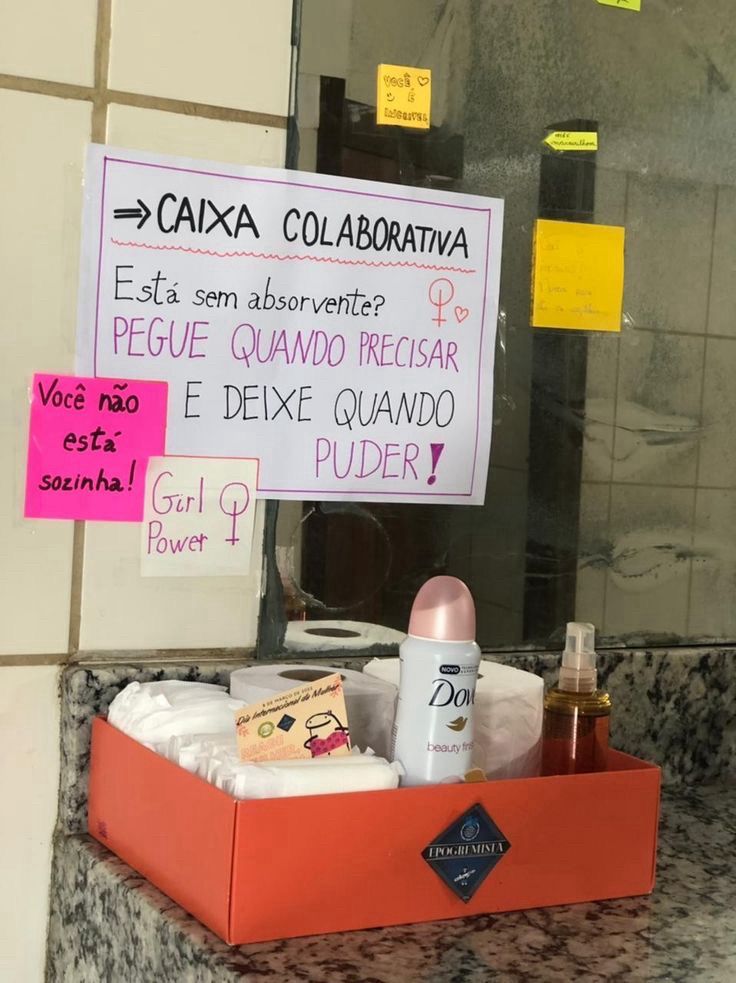 VOCÊ
É
INCRÍVEL
⇒ CAIXA COLABORATIVA
Está sem absorvente?
PEGUE QUANDO PRECISAR
E DEIXE QUANDO
PUDER!
Você não
está
sozinha!
Girl
Power
8 DE MARÇO DE
Dia Internacional da Mulher
NOVO
Dove
beauty finish
EPOGREMISTA